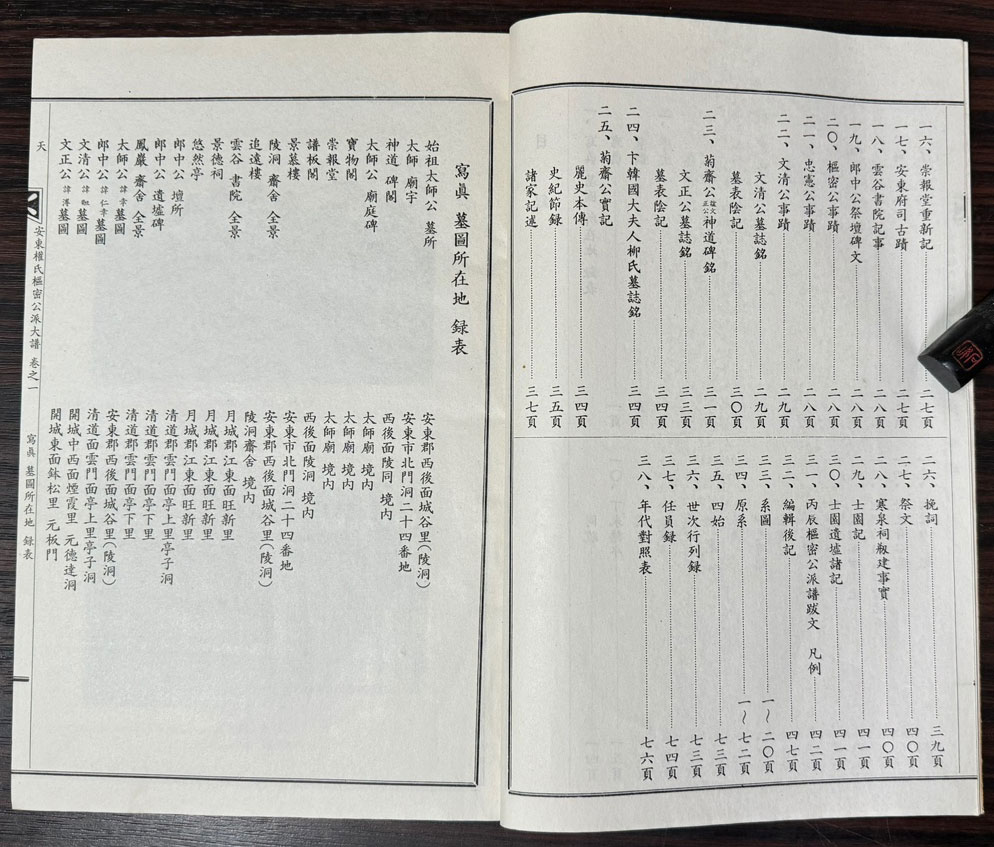 一六、崇報堂重新記………二七頁
一七、安東府司古蹟………二七頁
一八、雲谷書院記事………二八頁
一九、郎中公祭壇碑文………二八頁
二〇、樞密公事蹟………二八頁
二一、忠憲公事蹟………二八頁
二二、文清公事蹟………二九頁
文清公墓誌銘………二九頁
墓表陰記………三〇頁
二三、菊齋公諡文正公神道碑銘………三一頁
文正公墓誌銘………三三頁
墓表陰記………三四頁
二四、卞韓國大夫人柳氏墓誌銘………三四頁
二五、菊齋公實記
麗史本傳………三四頁
史紀節録………三五頁
諸家記述………三七頁
二六、挽詞………三九頁
二七、祭文………四〇頁
二八、寒泉祠刱建事實………四〇頁
二九、士園記………四一頁
三〇、士園遺墟諸記………四一頁
三一、丙辰樞密公派譜跋文 凡例………四二頁
三二、編輯後記………四七頁
三三、系圖………一~二〇頁
三四、原系………一~七二頁
三五、四始………七三頁
三六、世次行列録………七三頁
三七、任員録………七四頁
三八、年代對照表………七六頁
寫眞 墓圖所在地 録表
始祖太師公 墓所 安東郡西後面城谷里(陵洞)
太師 廟宇 安東市北門洞二十四番地
神道 碑閣 西後面陵同 境内
太師公 廟庭碑 太師廟 境内
寶物閣 太師廟 境内
崇報堂 太師廟 境内
譜板閣 西後面陵洞 境内
景慕樓 安東市北門洞二十四番地
陵洞 齋舍 全景 安東郡西後面城谷里(陵洞)
追遠樓 陵洞齋舍 境内
雲谷 書院 全景 月城郡江東面旺新里
景德祠 月城郡江東面旺新里
悠然亭 月城郡江東面旺新里
郎中公 壇所 清道郡雲門面亭上里亭子洞
郎中公 遺墟碑 清道郡雲門面亭下里
鳳巖 齋舍 全景 清道郡雲門面亭下里
太師公 諱幸墓圖 安東郡西後面城谷里(陵洞)
郎中公 諱仁幸墓圖 清道面雲門面亭上里亭子洞
文清公 諱墓圖 開城中西面煙霞里 元德達洞
文正公 諱溥墓圖 開城東面鉢松里 元板門
天 安東權氏樞密公派大譜 卷之一 寫眞 墓圖所在地 録表